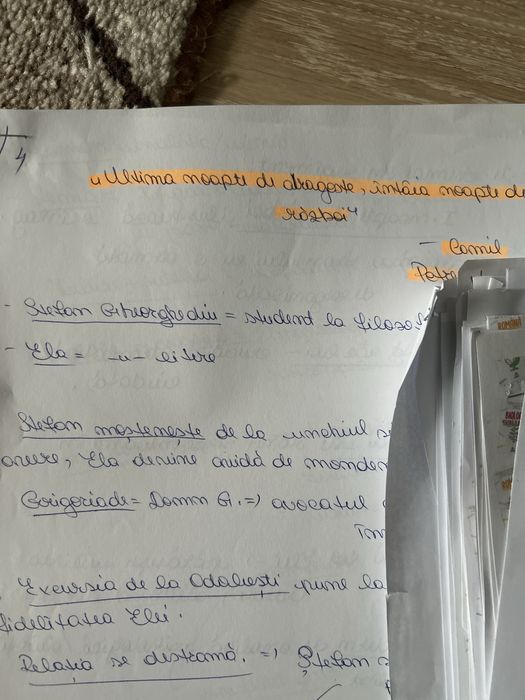 4
"Ultima noapte de dragoste, întâia noapte de
război"
- Camil
- Ștefan Gheorghidiu = student la
- Ela = -„- litere
Ștefan moștenește de la unchiul
avere, Ela devine avidă de
Grigoriade = Domn G. => avocatul
Excursia de la Odobești pune la
fidelitatea Elei.
Relația se destramă. => Ștefan
ROMÂNĂ